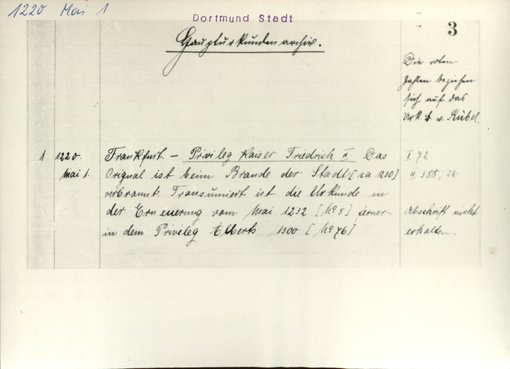 1220 Mai 1
Dortmund Stadt
3
Haupturkundenarchiv.
Die roten
Zahlen beziehen
sich auf das
Urk. b. v. Rübel.
1 1220 Mai 1.
Frankfurt. – Privileg Kaiser Friedrich II Das
Orignal ist beim Brande der Stadt [ca 1230]
verbrannt. Transumiert ist die Urkunde in
der Erneuerung vom Mai 1232 [No 5] ferner
in dem Privileg Alberts 1300 [No 76]
I 72
II 388, 26
Abschrift nicht
erhalten.